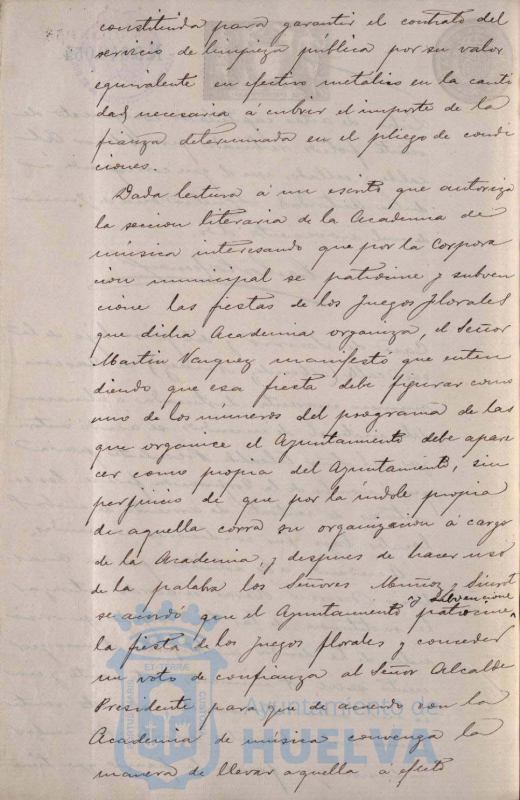 constituida para garantir el contrato del
servicio de limpieza pública por su valor
equivalente en efectivo metálico en la canti
dad necesaria á cubrir el importe de la
fianza determinada en el pliego de condi
ciones.
Dada lectura á un escrito que autoriza
la seccion literaria de la Academia de
música interesando que por la Corpora
cion municipal se patrocine y subven
cione las fiestas de los Juegos florales
que dicha Academia organiza, el Señor
Martin Vazquez manifestó que enten
diendo que esa fiesta debe figurar como
uno de los números del programa de las
que organice el Ayuntamiento debe apare
cer como propia del Ayuntamiento, sin
perjuicio de que por la índole propia
de aquella corra su organizacion á cargo
de la Academia, y despues de hacer uso
de la palabra los Señores Muñoz y
se acordó que el Ayuntamiento patrocine y subvencione
la fiesta de los juegos florales y conceder
un voto de confianza al Señor Alcalde
Presidente para que de acuerdo con la
Academia de música convenga la
manera de llevar aquella a efecto
Ayuntamiento de
HUELVA